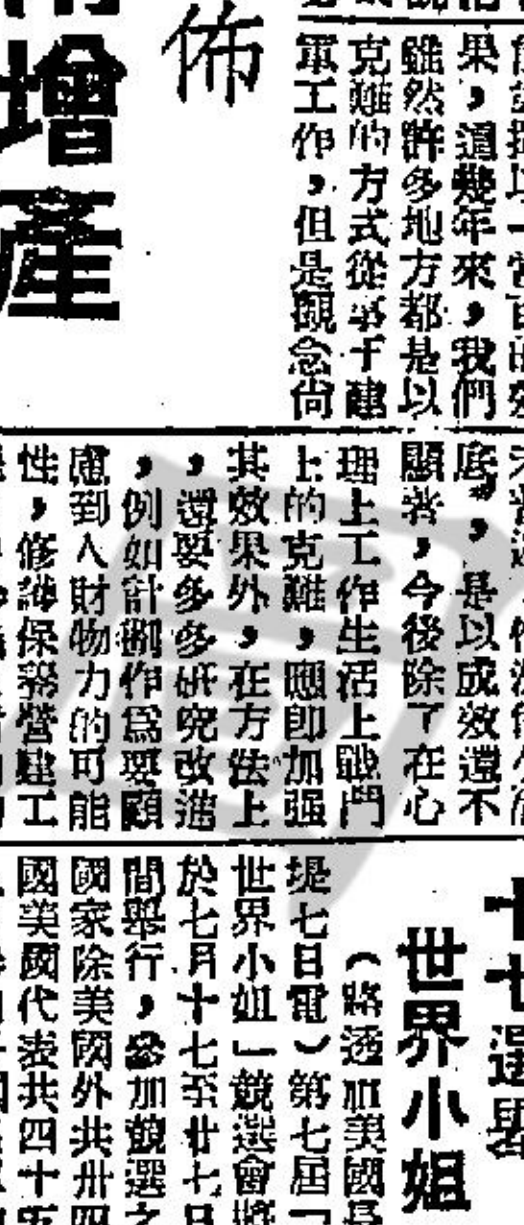 果，這幾年來，我們
雖然許多地方都是以
克難的方式從事于建
軍工作，但是觀念尚
佈
增產
底，是以成效還不
顯著，今後除了在心
理上工作生活上戰鬥
上的克難，應即加强
其效果外，在方法上
，還要多多研究改進
，例如計劃作為要顧
慮到人財物力的可能
性，修護保務營建工
選
世界小姐
（路透社美國長
堤七日電）第七屆「
世界小姐」競選會將
於七月十七至廿七日
間舉行，參加競選之
國家除美國外共卅四
國美國代表共四十五